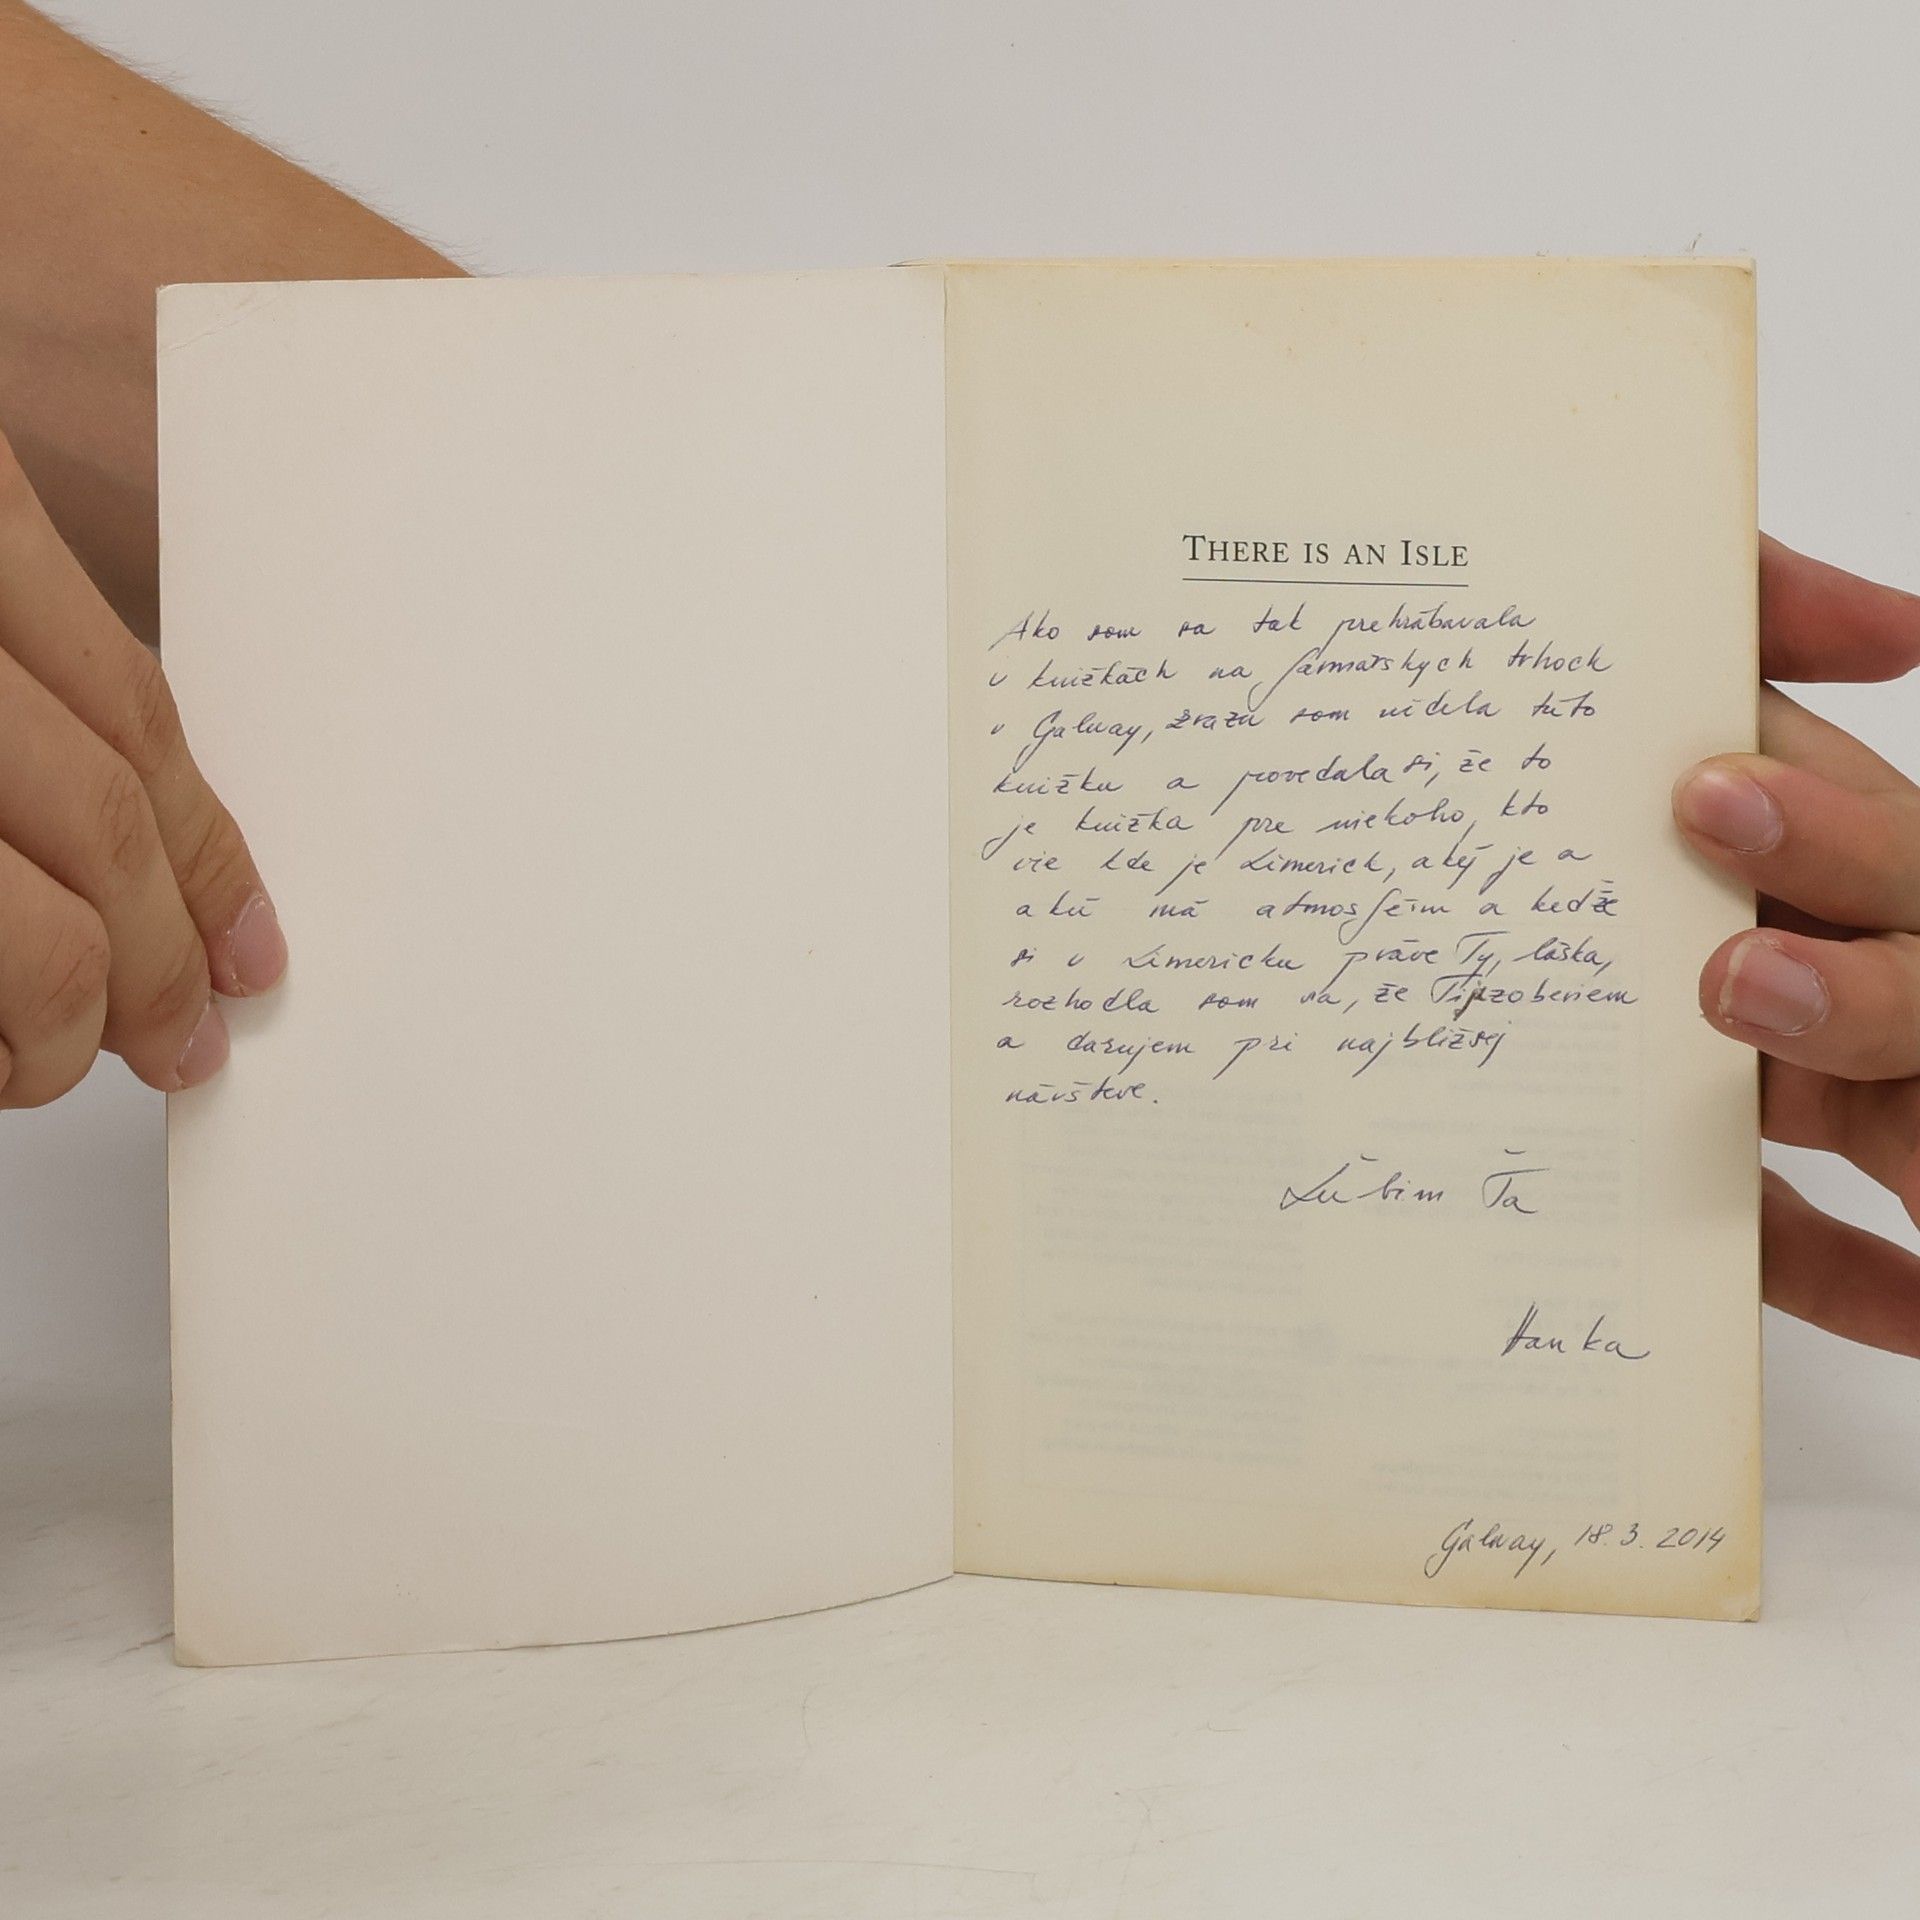 THERE IS AN ISLE
Ako som sa tak prehrabávala
v knižkách na farmárskych trhoch
v Galway, zrazu som videla túto
knižku a povedala si, že to
je knižka pre niekoho, kto
vie kde je Limerick, aký je a
akú má atmosféru a keďže
si v Limericku práve Ty, láska,
rozhodla som sa, že Ti
a darujem pri najbližšej
návšteve.
Ľúbim Ťa
Hanka
Galway, 18. 3. 2014